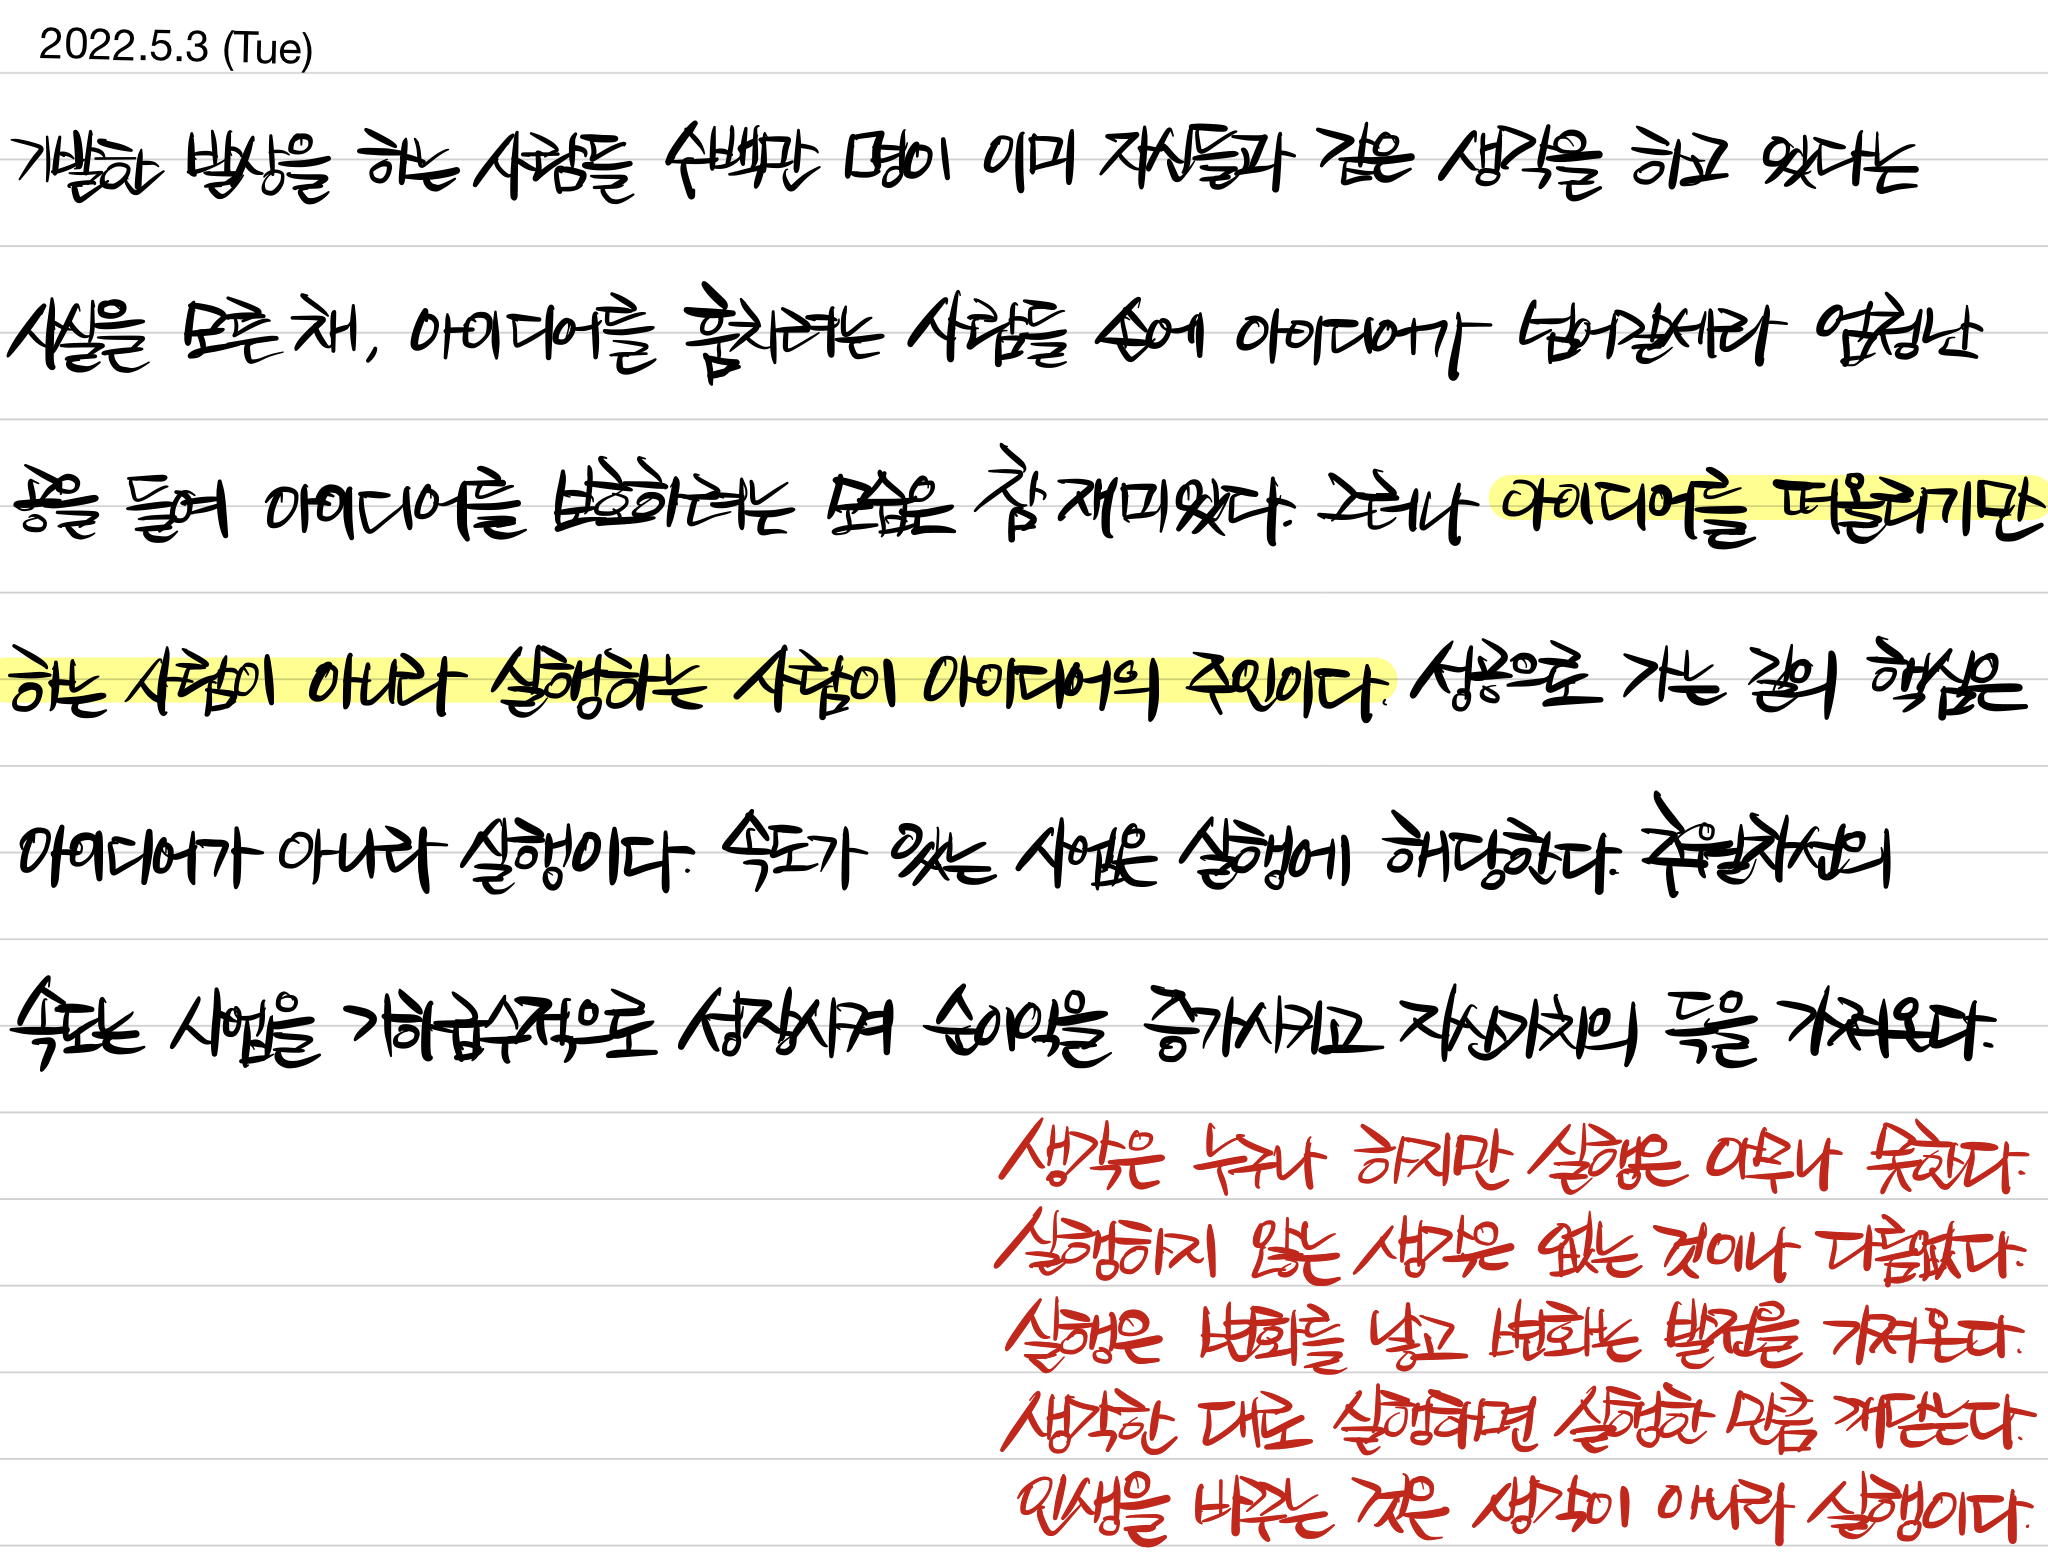 2022.5.3 (Tue)
기발한 발상을 하는 사람들 수백만 명이 이미 자신들과 같은 생각을 하고 있다는
사실을 모른 채, 아이디어를 훔치려는 사람들 손에 아이디어가 넘어갈세라 엄청난
공을 들여 아이디어를 보호하려는 모습은 참 재미있다. 그러나 아이디어를 떠올리기만
하는 사람이 아니라 실행하는 사람이 아이디어의 주인이다. 성공으로 가는 길의 핵심은
아이디어가 아니라 실행이다. 속도가 있는 사업은 실행에 해당한다. 추월차선의
속도는 사업을 기하급수적으로 성장시켜 순이익을 증가시키고 자산가치의 득을 가져온다.
생각은 누구나 하지만 실행은 아무나 못한다.
실행하지 않는 생각은 없는 것이나 다름없다.
실행은 변화를 낳고 변화는 발전을 가져온다.
생각한 대로 실행하면 실행한 만큼 깨닫는다.
인생을 바꾸는 것은 생각이 아니라 실행이다.